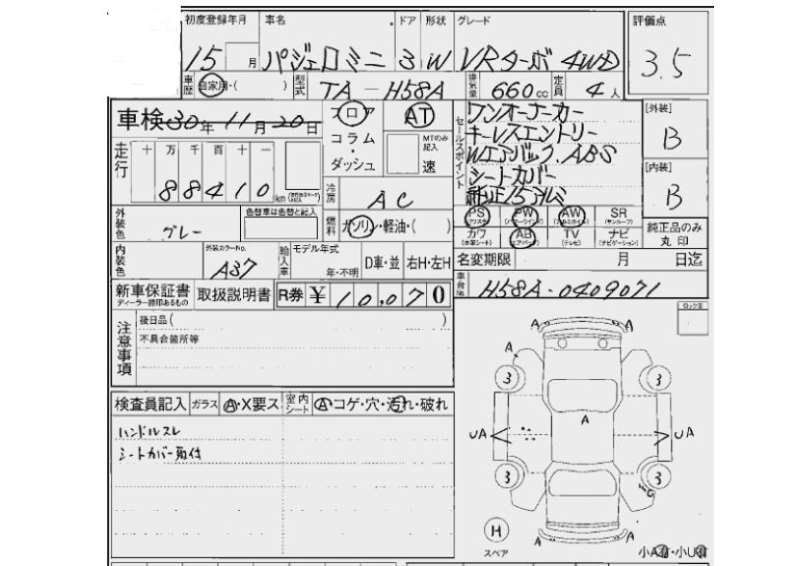 初度登録年月 車名 ドア 形状 グレード 評価点
15 月 パジェロミニ 3 W VRターボ 4WD 3.5
車歴 自家用・( ) 型式 TA-H58A 排気量 660cc 定員 4人
車検 30年 11月 20日 フロア AT
コラム MTのみ記入
ダッシュ 速
セールスポイント
ワンオーナーカー
キーレスエントリー
Wエアバック.ABS
シートカバー
純正15アルミ
[外装]
B
[内装]
B
走行 十 万 千 百 十 一
88410 km
冷房 AC
外装色 グレー 色替車は色替と記入 燃料 ガソリン・軽油・( )
PS PW AW SR
カワ AB TV ナビ
純正品のみ
丸印
内装色 外装カラーNo. A37 輸入車 モデル年式 年・不明 D車・並 右H・左H
名変期限 月 日迄
新車保証書 取扱説明書 R券 ¥10,070
車台No. H58A-0409071
注意事項 後日品( )
不具合箇所等
検査員記入 ガラス A・X要ス 室内シート A・コゲ・穴・汚れ・破れ
ハンドルスレ
シートカバー取付
A A
A
3 3
A
UA UA
3 3
H
スペア
A A
小A・小U